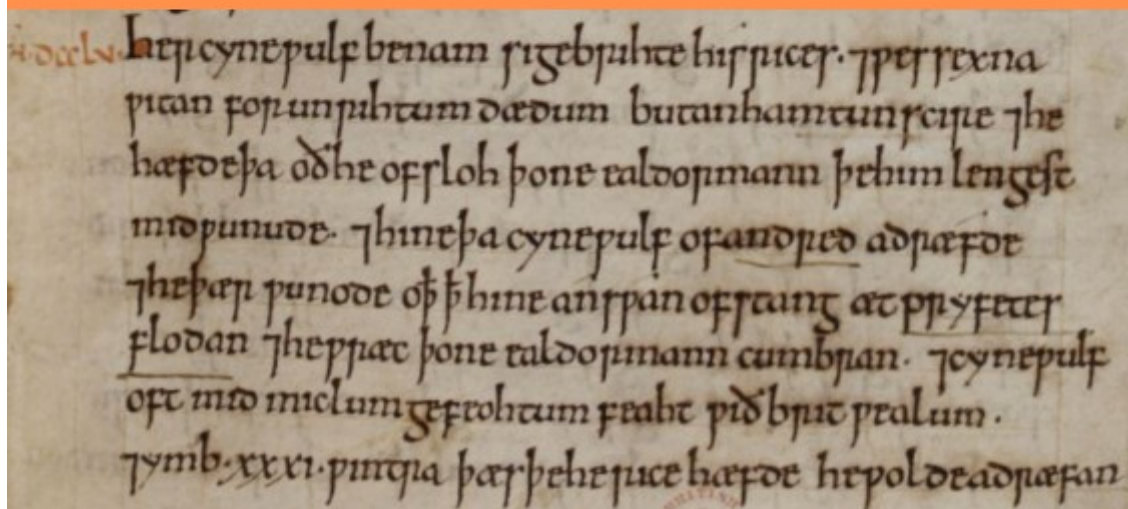 .dcclv. Her cyneƿulf benam sigebrihte his rices· ⁊ ƿessexna
ƿitan for unrihtum dædum butan hamtunscire ⁊ he
hæfde þa oð he ofsloh þone ealdormann þe him lengest
mid ƿunude· ⁊ hine þa cyneƿulf of andred adræfde
⁊ he þær ƿunode oþ ꝥ hine an sƿan ofstang æt pryfetes
flodan ⁊ he ƿræc þone ealdormann cumbran· ⁊ cyneƿulf
oft mid miclum gefeohtum feaht ƿið britƿealum·
⁊ ymb·xxxi·ƿintra þæs þe he rice hæfde he ƿolde adræfan